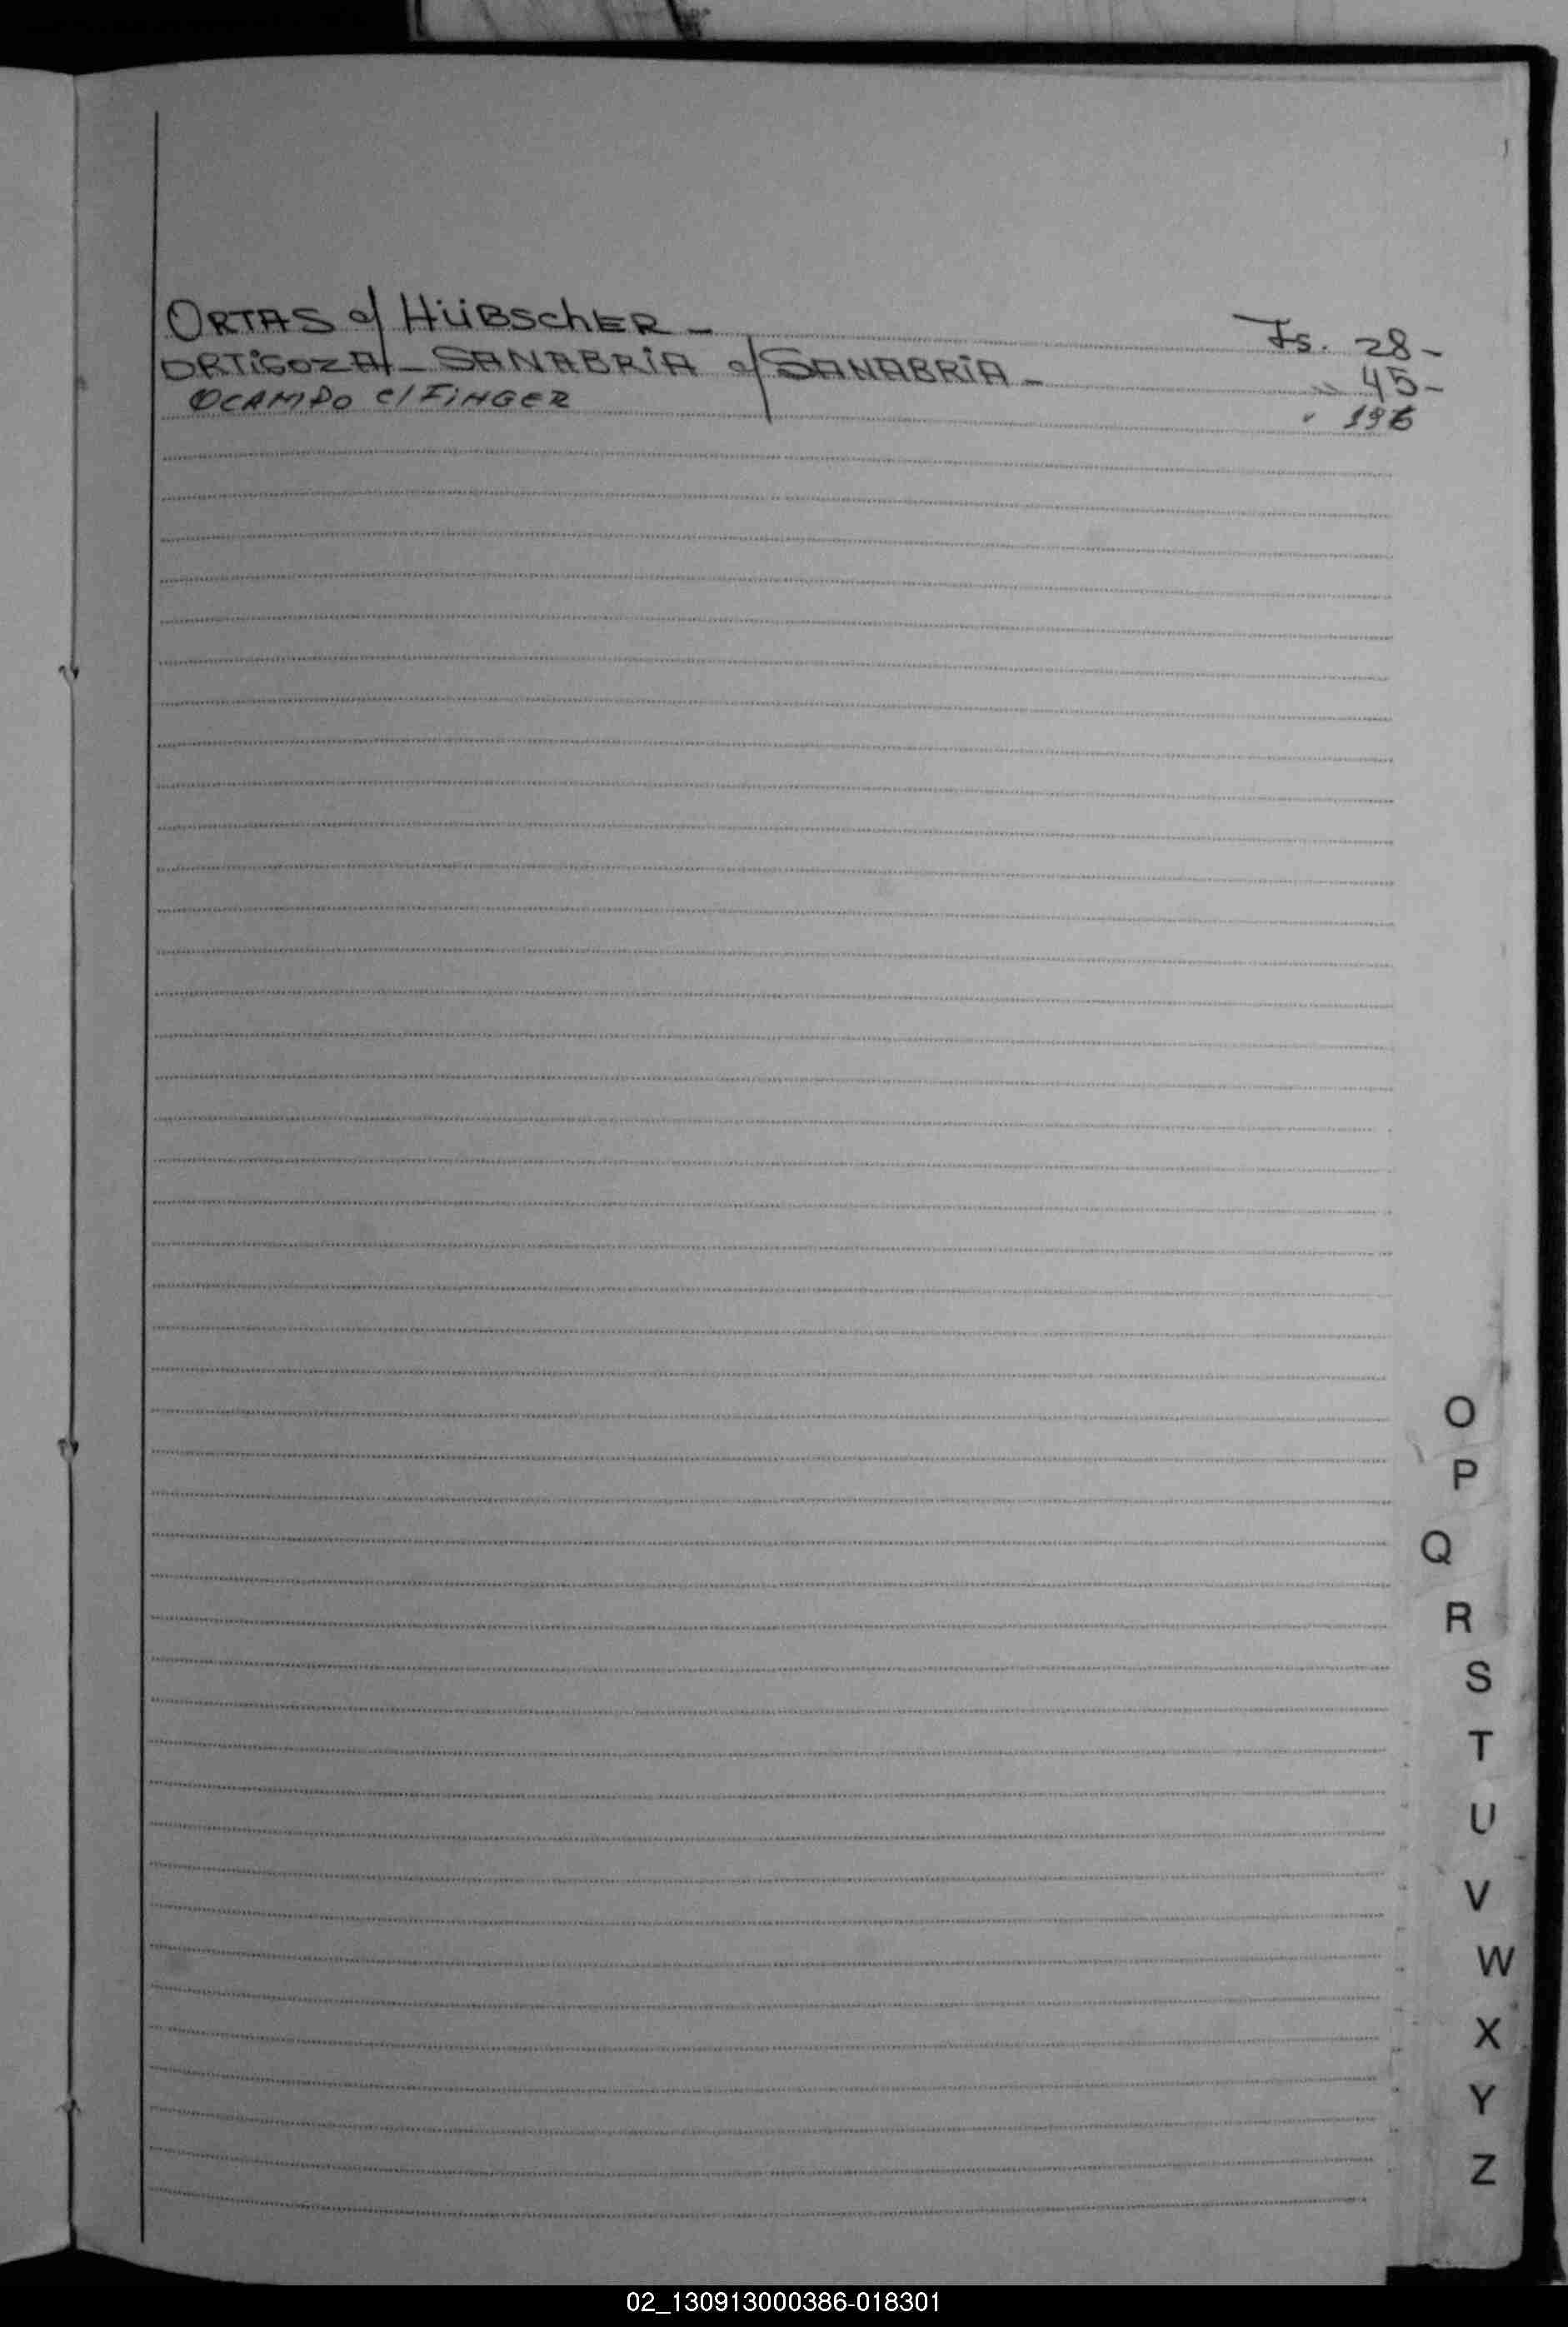 ORTAS c/ HÜBSCHER - Fs. 28-
ORTIGOZA - SANABRIA c/ SANABRIA - " 45-
OCAMPO c/ FINGER " 196
O
P
Q
R
S
T
U
V
W
X
Y
Z
02_130913000386-018301